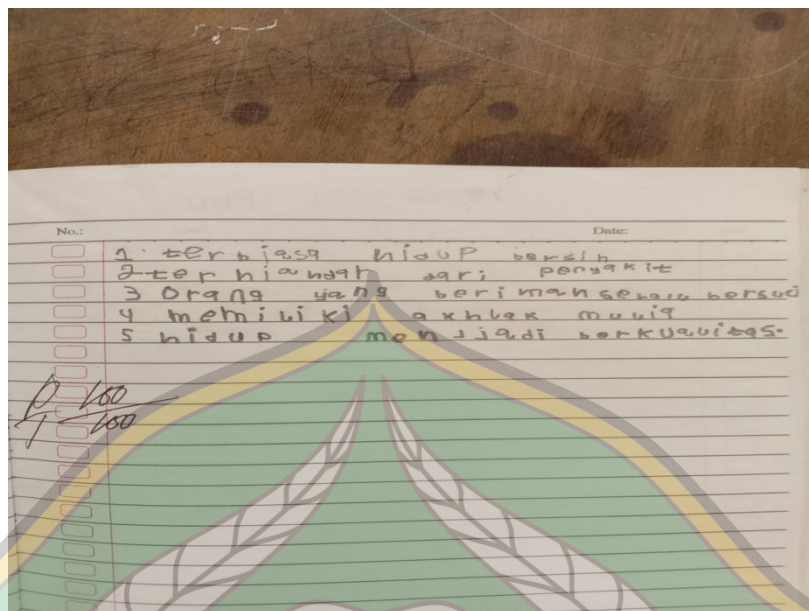 No.:
Date:
1. terbiasa hidup bersih
2 terhiandar dari penyakit
3 Orang yang beriman selalu bersuci
4 memiliki akhlak mulia
5 hidup menjadi berkualitas.
100
100